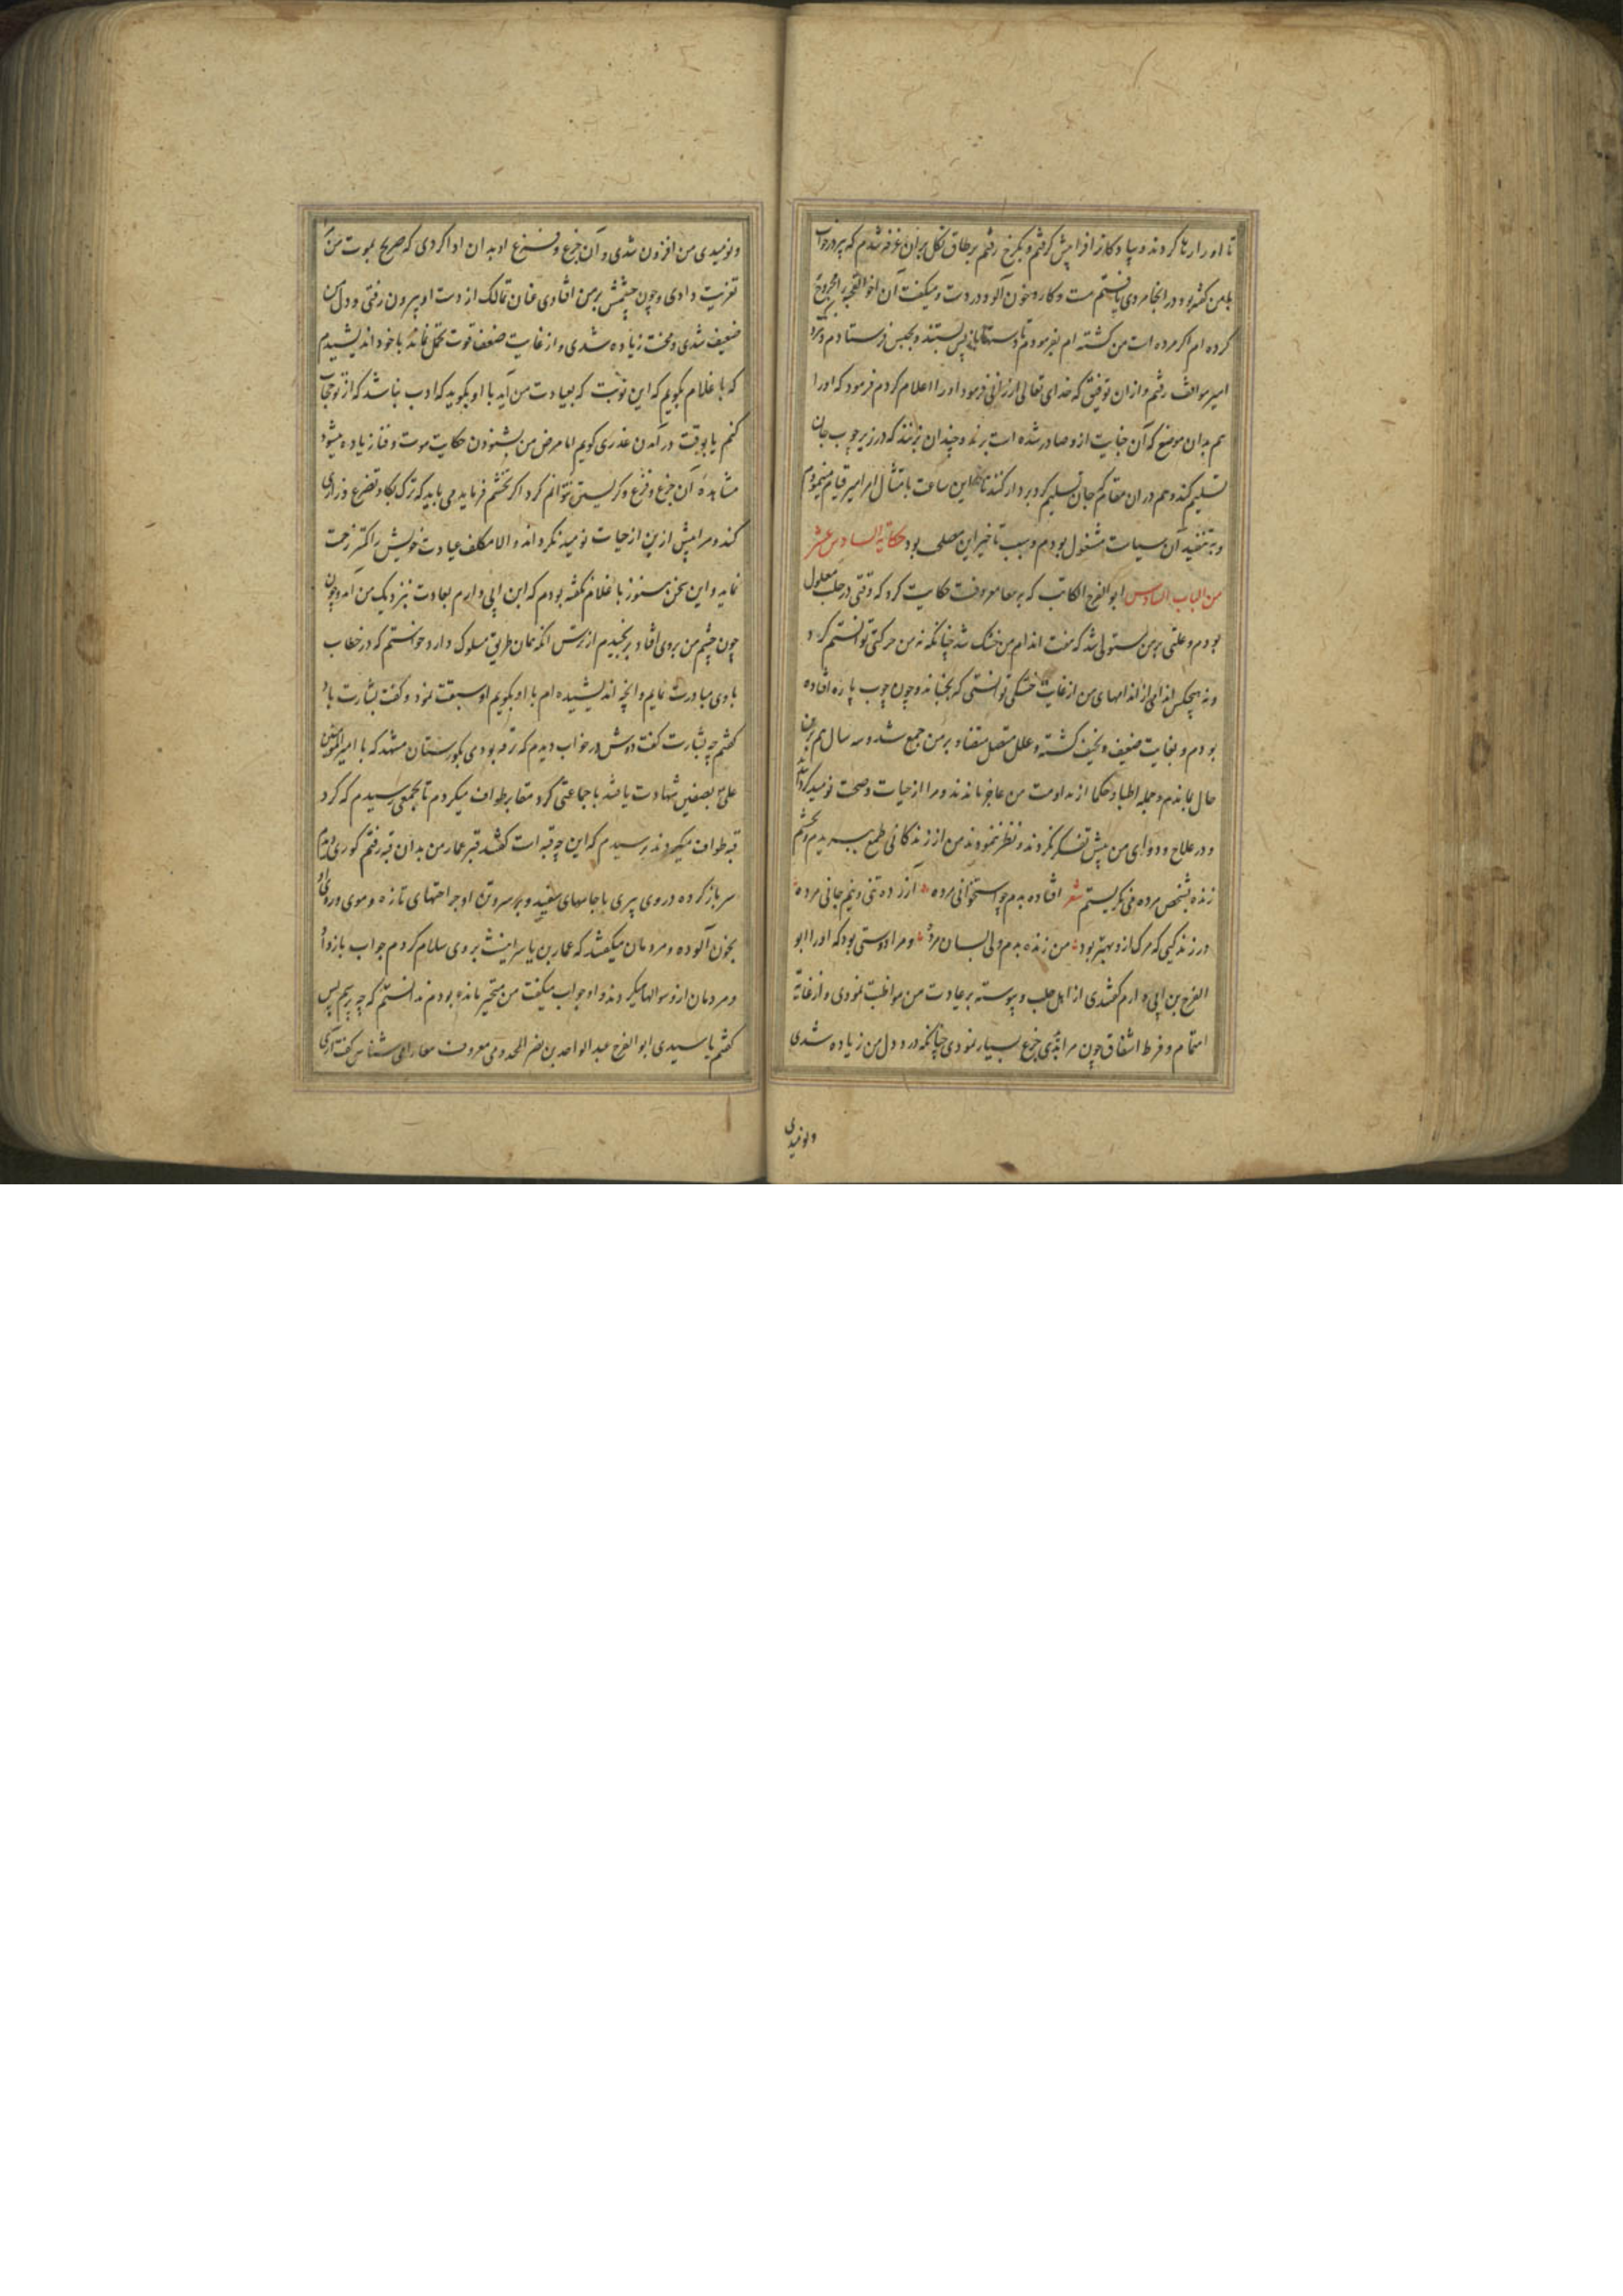 تا او را رها کردند و پیاده کار فرا پیش گرفتم و بکرخ رفتم بر طاق تکل بران غرفه شدم که پیر در خواب
با من گفته بود در انجا مردی یافتم مست و کارد خون آلود در دست و میگفت آن اخو القحبه را مجروح
کرده ام اگر مرده است من کشته ام بفرمودم تا دستهاش باز پس بستند و بحبس فرستادم و نزد
امیر موافقت رفتم و ازان توفیق که خدای تعالی ارزانی فرمود او را اعلام کردم فرمود که او را
هم بدان موضع که آن جنایت ازو صادر شده است برند و چندان بزنند که در زیر چوب جان
تسلیم کند و هم دران مقام که جان تسلیم کرد بر دار کنند تا این ساعت بامتثال امر امیر قیام مینمودم
و بر تنفیذ آن سیاست مشغول بودم و سبب تاخیر این معنی بود حکایة السادس عشر
من الباب السادس ابو الفرج الکاتب که بر معا معروفست حکایت کرد که وقتی در حلب معلول
بودم و علتی بر من مستولی شد که هفت اندام من خشک شد چنانکه نه من حرکتی توانستم کرد
و نه هیچکس اندامی از اندامهای من از غایت خشکی توانستی که بجنباند و چون چوب پاره افتاده
بودم و بغایت ضعیف و نحیف گشته و علل متصل متضاد بر من جمع شد و سه سال هم بران
حال بماندم و جمله اطبا و حکما از مداومت من عاجز ماندند و مرا از حیات و صحت نومید کردانیدند
و در علاج و دوای من بیش تفکر نکردند و نظر ننمودند من از زندگانی طمع ببریدم و بچشم
زنده بشخص مرده می نگریستم شعر افتاده بدم چو استخوانی مرده آزرده تنی و نیم جانی مرده
در زندگیی که مرگ ازو بهتر بود من زنده بدم ولی بسان مرده و مرا دوستی بود که او را ابو
الفرج بن ابی دارم گفتندی از اهل حلب و پیوسته بر عیادت من مواظبت نمودی و از غایت
اهتمام و فرط اشفاق چون مرا بدیدی جزع بسیار نمودی چنانکه درد دل من زیاده شدی
و نومیدی
و نومیدی من افزون شدی و آن جزع و فزع او بدان ادا کردی که صریح بموت من
تعزیت دادی و چون چشمش بر من افتادی عنان تمالک از دست او بیرون رفتی و دل من
ضعیف شدی و محنت زیاده شدی و از غایت ضعف قوت تحمل نماند با خود اندیشیدم
که با غلام بگویم که این نوبت که بعیادت من آید با او بگوید که ادب نباشد که از تو حجاب
کنم یا بوقت در آمدن عذری گویم اما مرض من بشنودن حکایت موت و فنا زیاده میشود
مشاهده آن جزع و فزع و گریستن نتوانم کرد اگر تجشم فرماید می باید که ترک بکا و تضرع و زاری
کند و مرا پیش ازین از حیات نومید نگرداند و الا تکلف عیادت خویش را کمتر زحمت
نماید و این سخن هنوز با غلام نگفته بودم که ابن ابی دارم بعادت بنزدیک من آمد و چون
چون چشم من بروی افتاد برنجیدم از ترس انکه همان طریق مسلوک دارد خواستم که در خطاب
با وی مبادرت نمایم و انچه اندیشیده ام با او بگویم او سبقت نمود و گفت بشارت باد
گفتم چه بشارت گفت دوش در خواب دیدم که رفته بودی بگورستان مشهد که با امیر المومنین
علی بصفین شهادت یافتند با جماعتی گرد مقابر طواف میکردم تا بجمعی رسیدم که گرد
قبه طواف میکردند پرسیدم که این چه قبه است گفتند قبر عمار من بدان قبه رفتم گوری دیدم
سر باز کرده در وی پیری با جامهای سفید و بر سر و تن او جراحتهای تازه و موی و روی او
بخون آلوده و مردمان میگفتند که عمار بن یاسر اینست بروی سلام کردم جواب باز داد
و مردمان ازو سوالها میکردند و او جواب میگفت من متحیر مانده بودم ندانستم که چه پرسم پس
گفتم یا سیدی ابو الفرج عبد الواحد بن نصر المخدومی معروف معا را می شناسی گفت آری